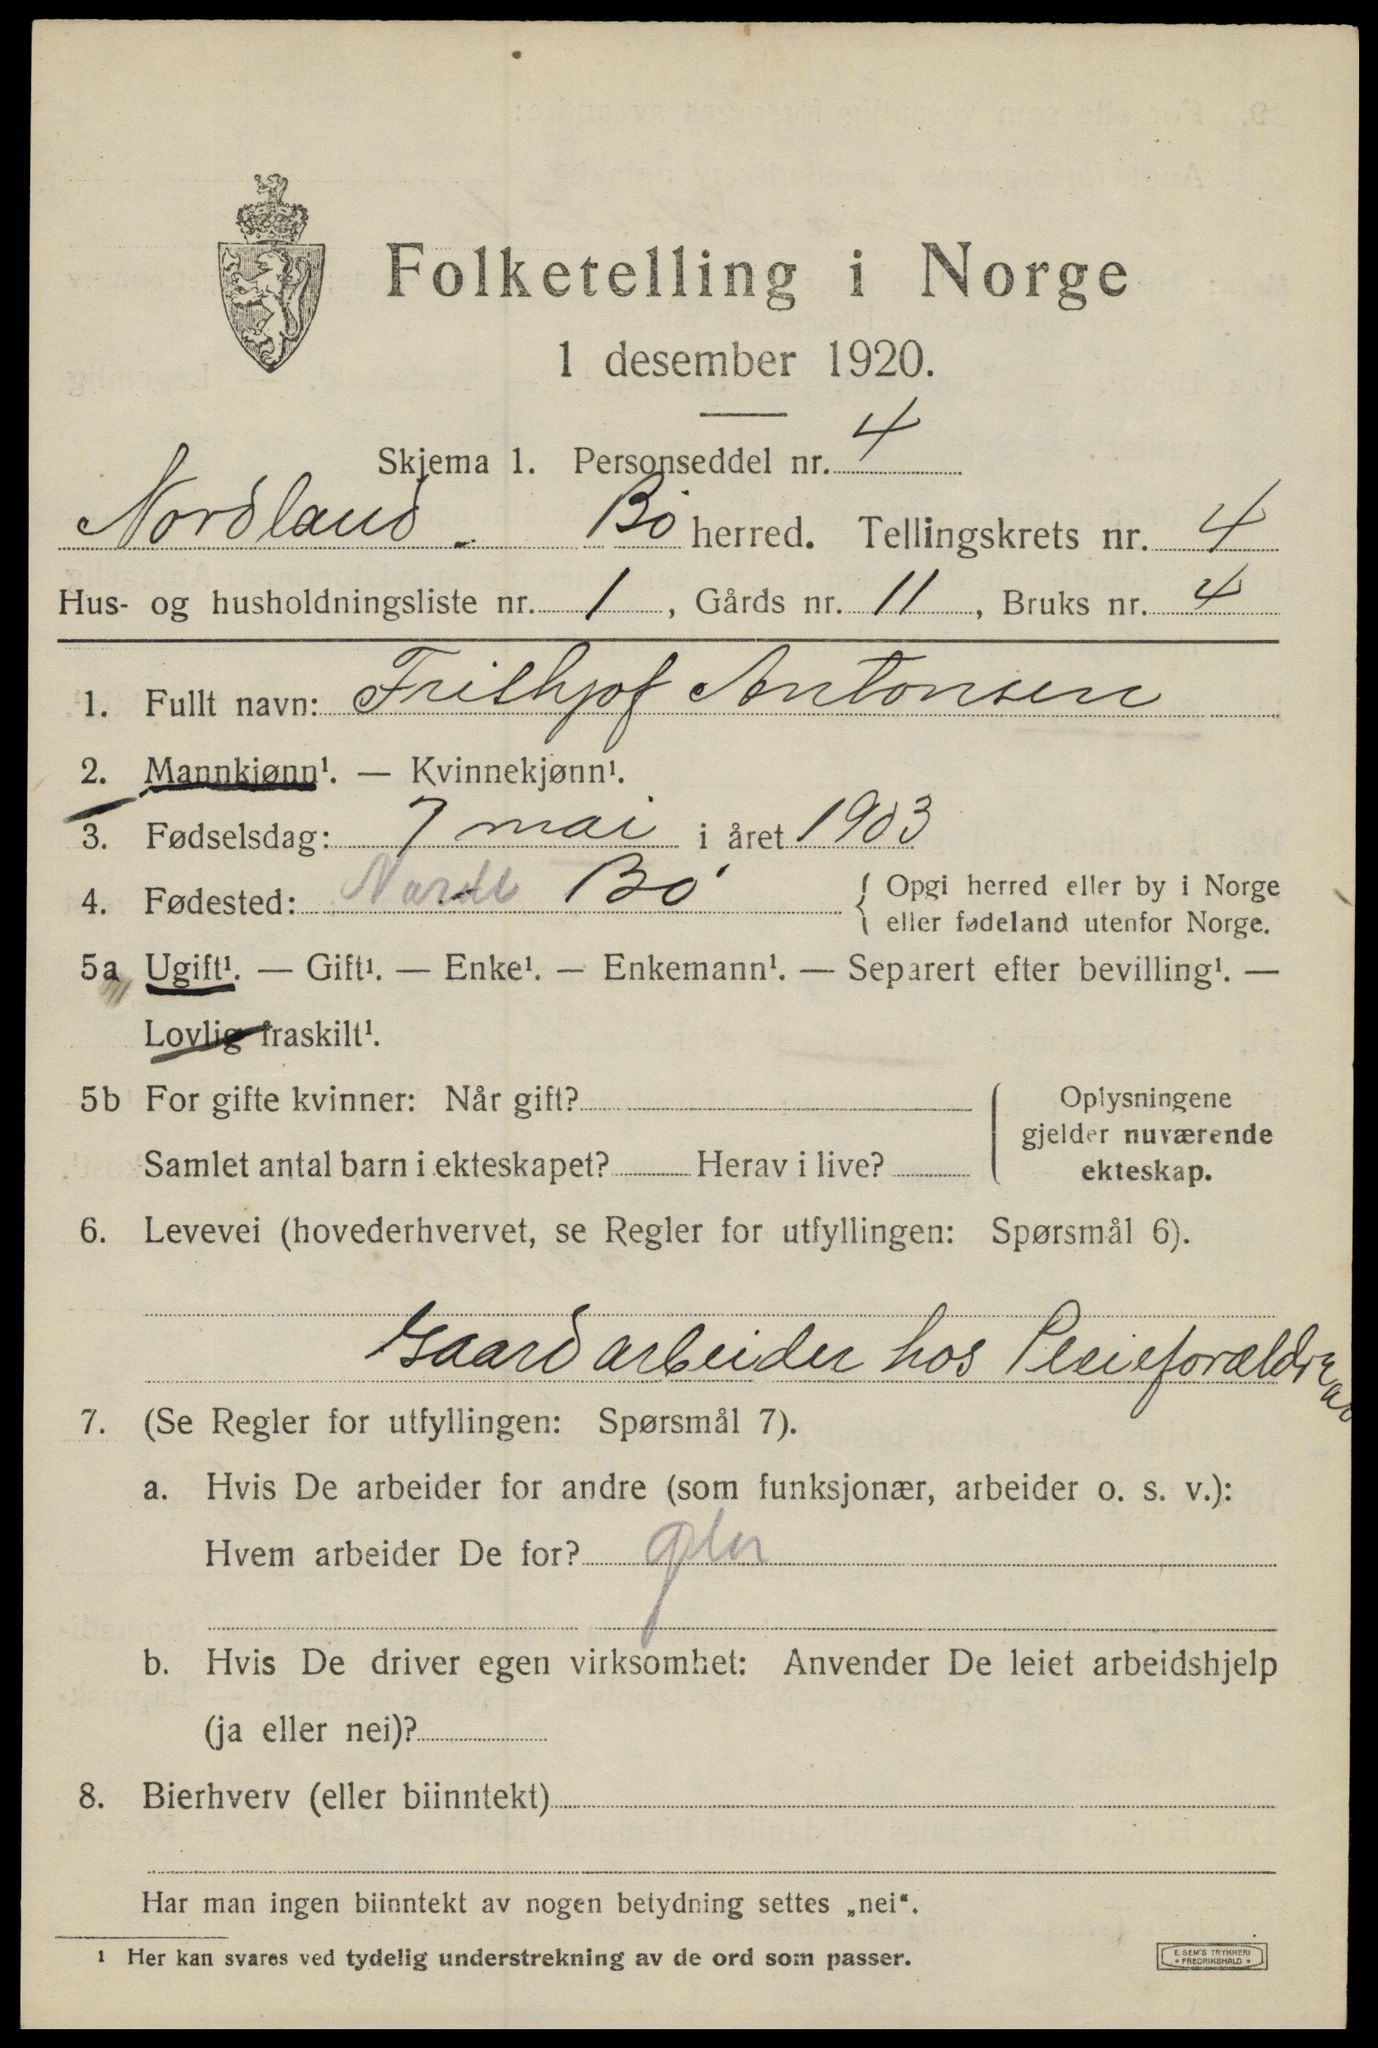 Folketelling i Norge
1 desember 1920.
Skjema 1. Personseddel nr. 4
Nordland. Bø herred. Tellingskrets nr. 4
Hus- og husholdningsliste nr. 1, Gårds nr. 11, Bruks nr. 4
1. Fullt navn: Frithjof Antonsen
2. Mannkjønn¹. — Kvinnekjønn¹.
3. Fødselsdag: 7 mai i året 1903
4. Fødested: Nordl Bø { Opgi herred eller by i Norge
eller fødeland utenfor Norge.
5a Ugift¹. — Gift¹. — Enke¹. — Enkemann¹. — Separert efter bevilling¹. —
Lovlig fraskilt¹.
5b For gifte kvinner: Når gift?
Samlet antal barn i ekteskapet? Herav i live?
Oplysningene
gjelder nuværende
ekteskap.
6. Levevei (hovederhvervet, se Regler for utfyllingen: Spørsmål 6).
Gaardarbeider hos Pleieforældre
7. (Se Regler for utfyllingen: Spørsmål 7).
a. Hvis De arbeider for andre (som funksjonær, arbeider o. s. v.):
Hvem arbeider De for?
b. Hvis De driver egen virksomhet: Anvender De leiet arbeidshjelp
(ja eller nei)?
8. Bierhverv (eller biinntekt)
Har man ingen biinntekt av nogen betydning settes „nei“.
¹ Her kan svares ved tydelig understrekning av de ord som passer.
E. SEM'S TRYKKERI
* FREDRIKSHALD *